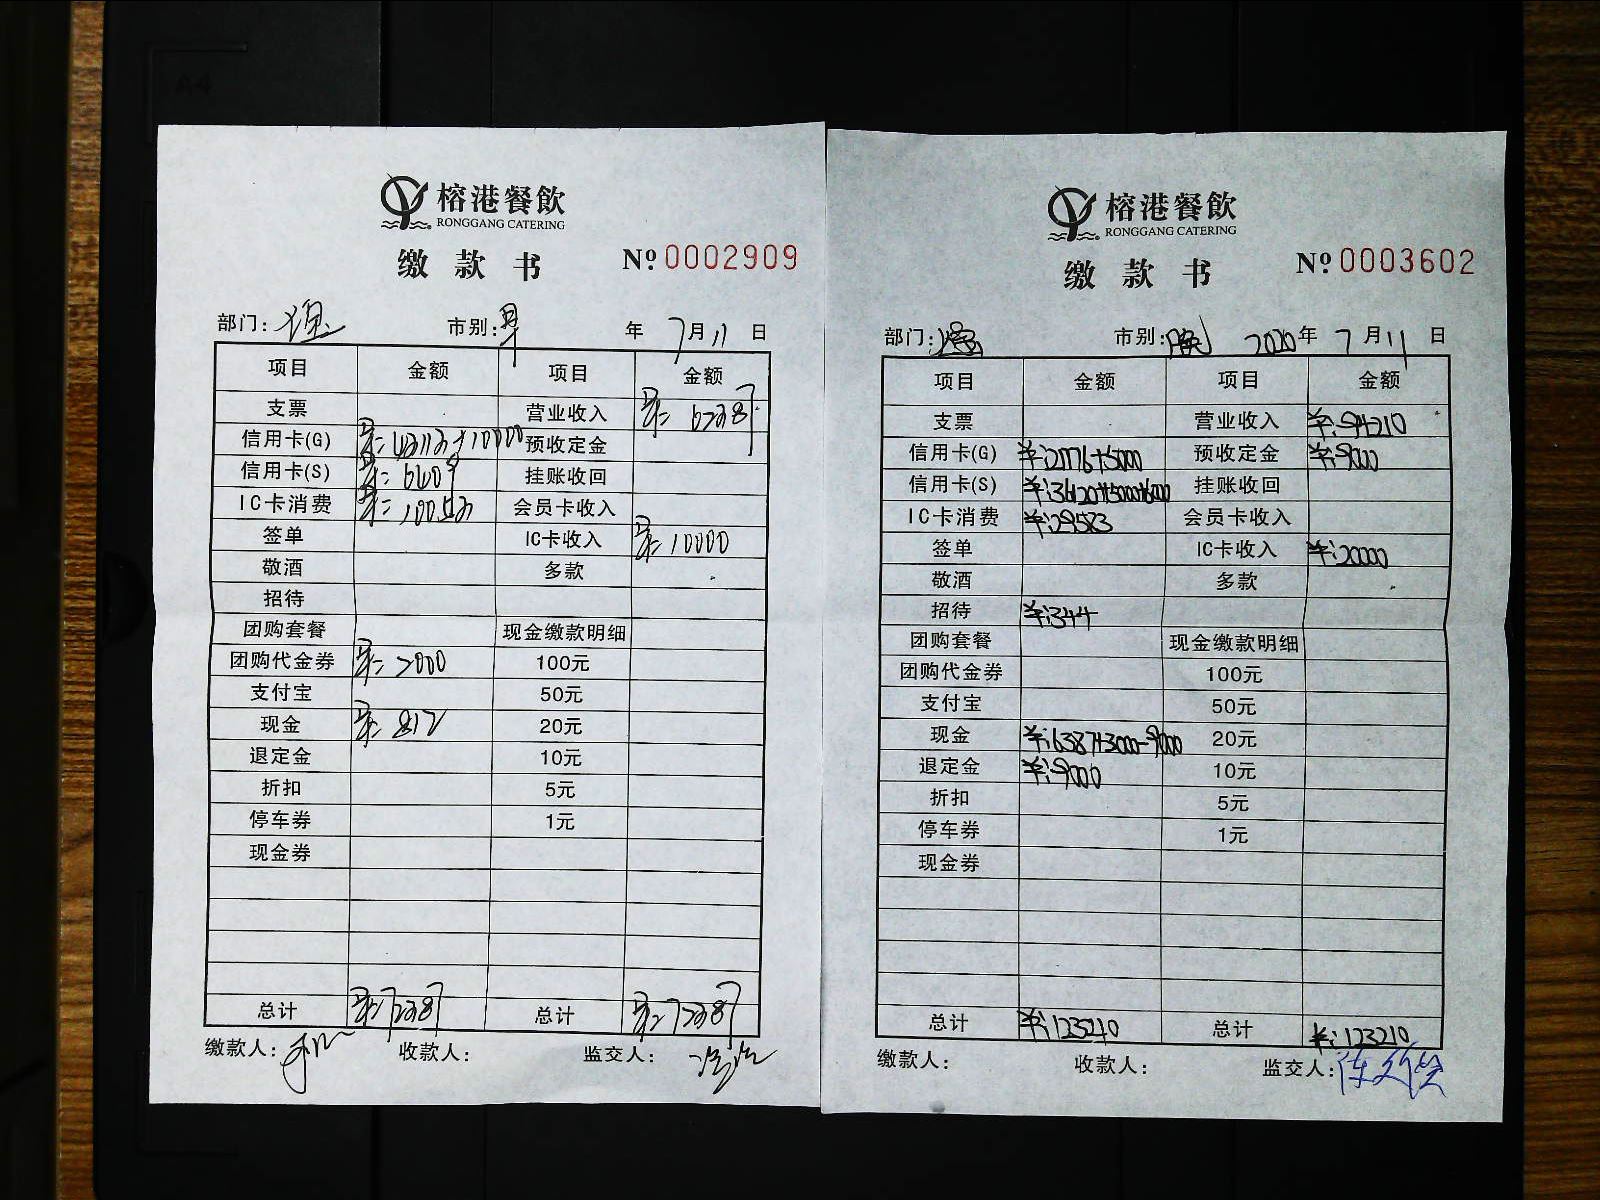 榕港餐飲
RONGGANG CATERING
缴款书 № 0002909
部门: 市别:早 年 7月11日
项目 金额 项目 金额
支票 营业收入
信用卡(G) 预收定金
信用卡(S) 挂账收回
IC卡消费 会员卡收入
签单 IC卡收入 10000
敬酒 多款
招待
团购套餐 现金缴款明细
团购代金券 100元
支付宝 50元
现金 817 20元
退定金 10元
折扣 5元
停车券 1元
现金券
总计 总计
缴款人: 收款人: 监交人:
榕港餐飲
RONGGANG CATERING
缴款书 № 0003602
部门: 市别:晚 2020年 7月11日
项目 金额 项目 金额
支票 营业收入 ¥:94210
信用卡(G) 预收定金 ¥:9000
信用卡(S) ¥:36120+5000+6000 挂账收回
IC卡消费 ¥:29583 会员卡收入
签单 IC卡收入 ¥:20000
敬酒 多款
招待 ¥:344
团购套餐 现金缴款明细
团购代金券 100元
支付宝 50元
现金 ¥:6387+3000-9000 20元
退定金 ¥:9000 10元
折扣 5元
停车券 1元
现金券
总计 ¥:123210 总计 ¥:123210
缴款人: 收款人: 监交人: